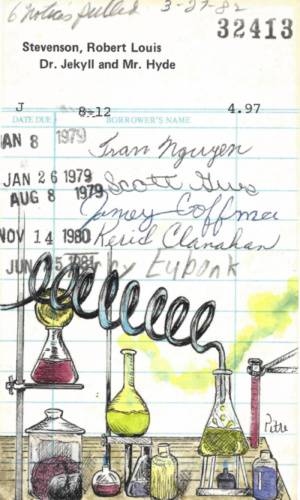 6 notices pulled 3-27-82
32413
Stevenson, Robert Louis
Dr. Jekyll and Mr. Hyde
J 8-12 4.97
DATE DUE BORROWER'S NAME
AN 8 1979 Tran Nguyen
JAN 26 1979 Scott
AUG 8 1979 Jamey Coffman
NOV 14 1980 Kerid Clanahan
JUN 5 1981 Eubank
Petre